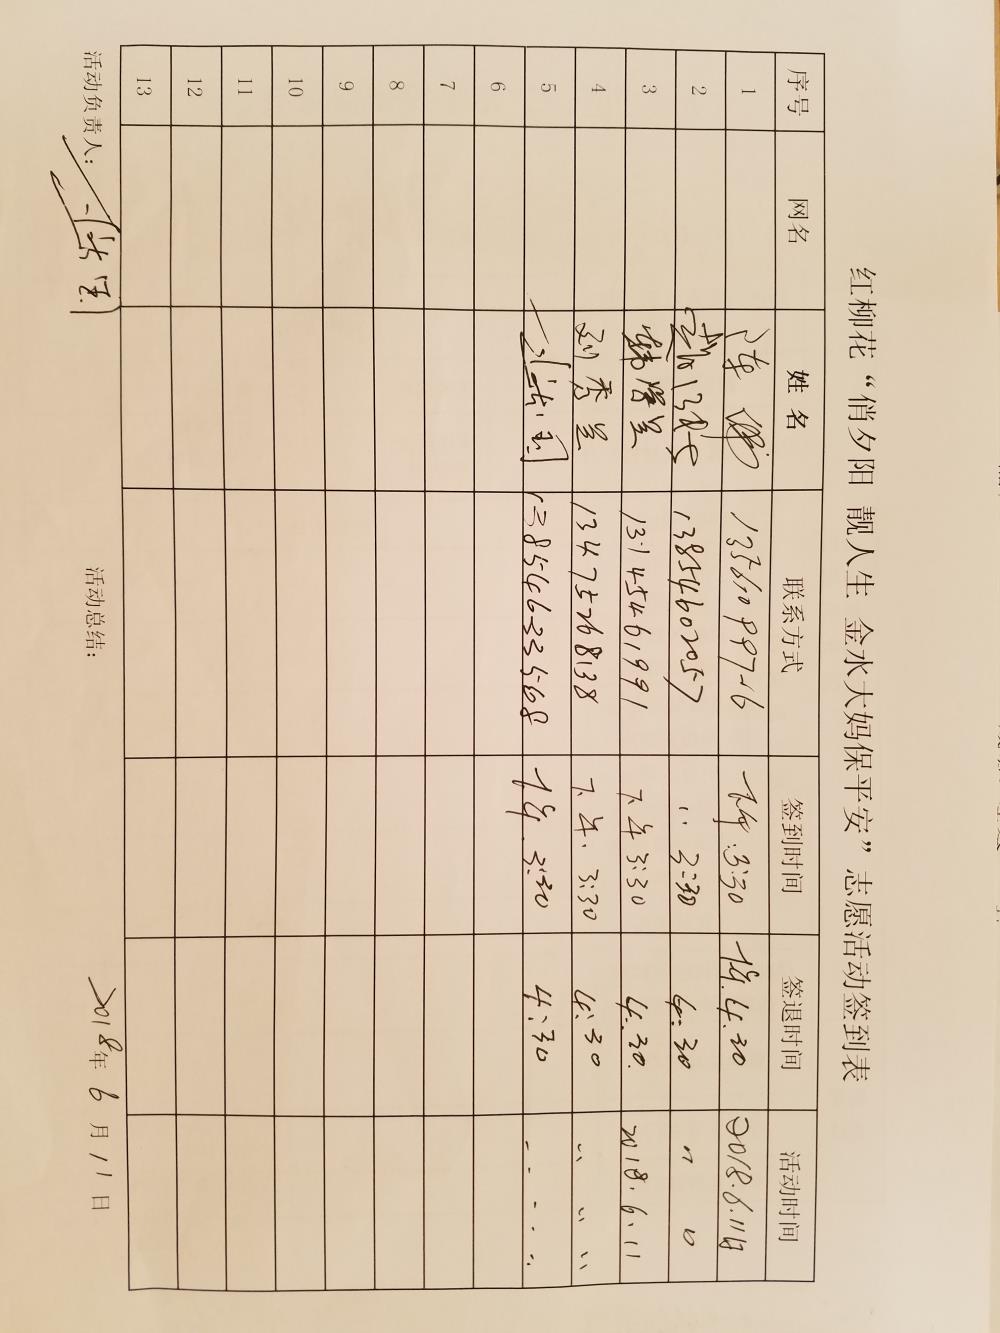 红柳花“俏夕阳 靓人生 金水大妈保平安”志愿活动签到表
序号 网名 姓名 联系方式 签到时间 签退时间 活动时间
1 下午.3:30 下午.4:30 2018.6.11日
2 13854602057 〃 3:30 4:30 〃 〃
3 13145461991 下午3:30 4:30. 2018.6.11
4 刘秀兰 13475268138 下午.3:30 4:30 〃 〃 〃
5 13854633568 下午.3:30 4:30
6
7
8
9
10
11
12
13
活动负责人: 活动总结: 2018年6月11日